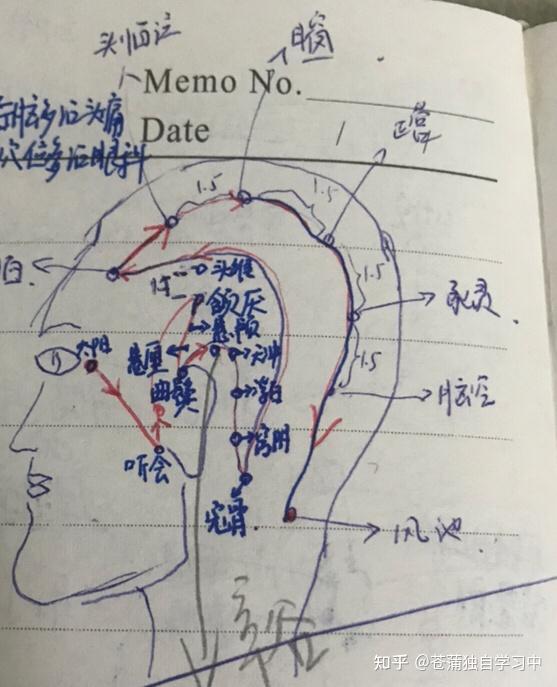 头临泣
目窗
Memo No.
Date
正营
头痛
穴位多治眼科
1.5
1.5
1.5
1.5
白
1.5
头维
颔厌
悬颅
悬厘
曲鬓
天冲
浮白
完骨
听会
承灵
脑空
风池
知乎 @苍蒲独自学习中